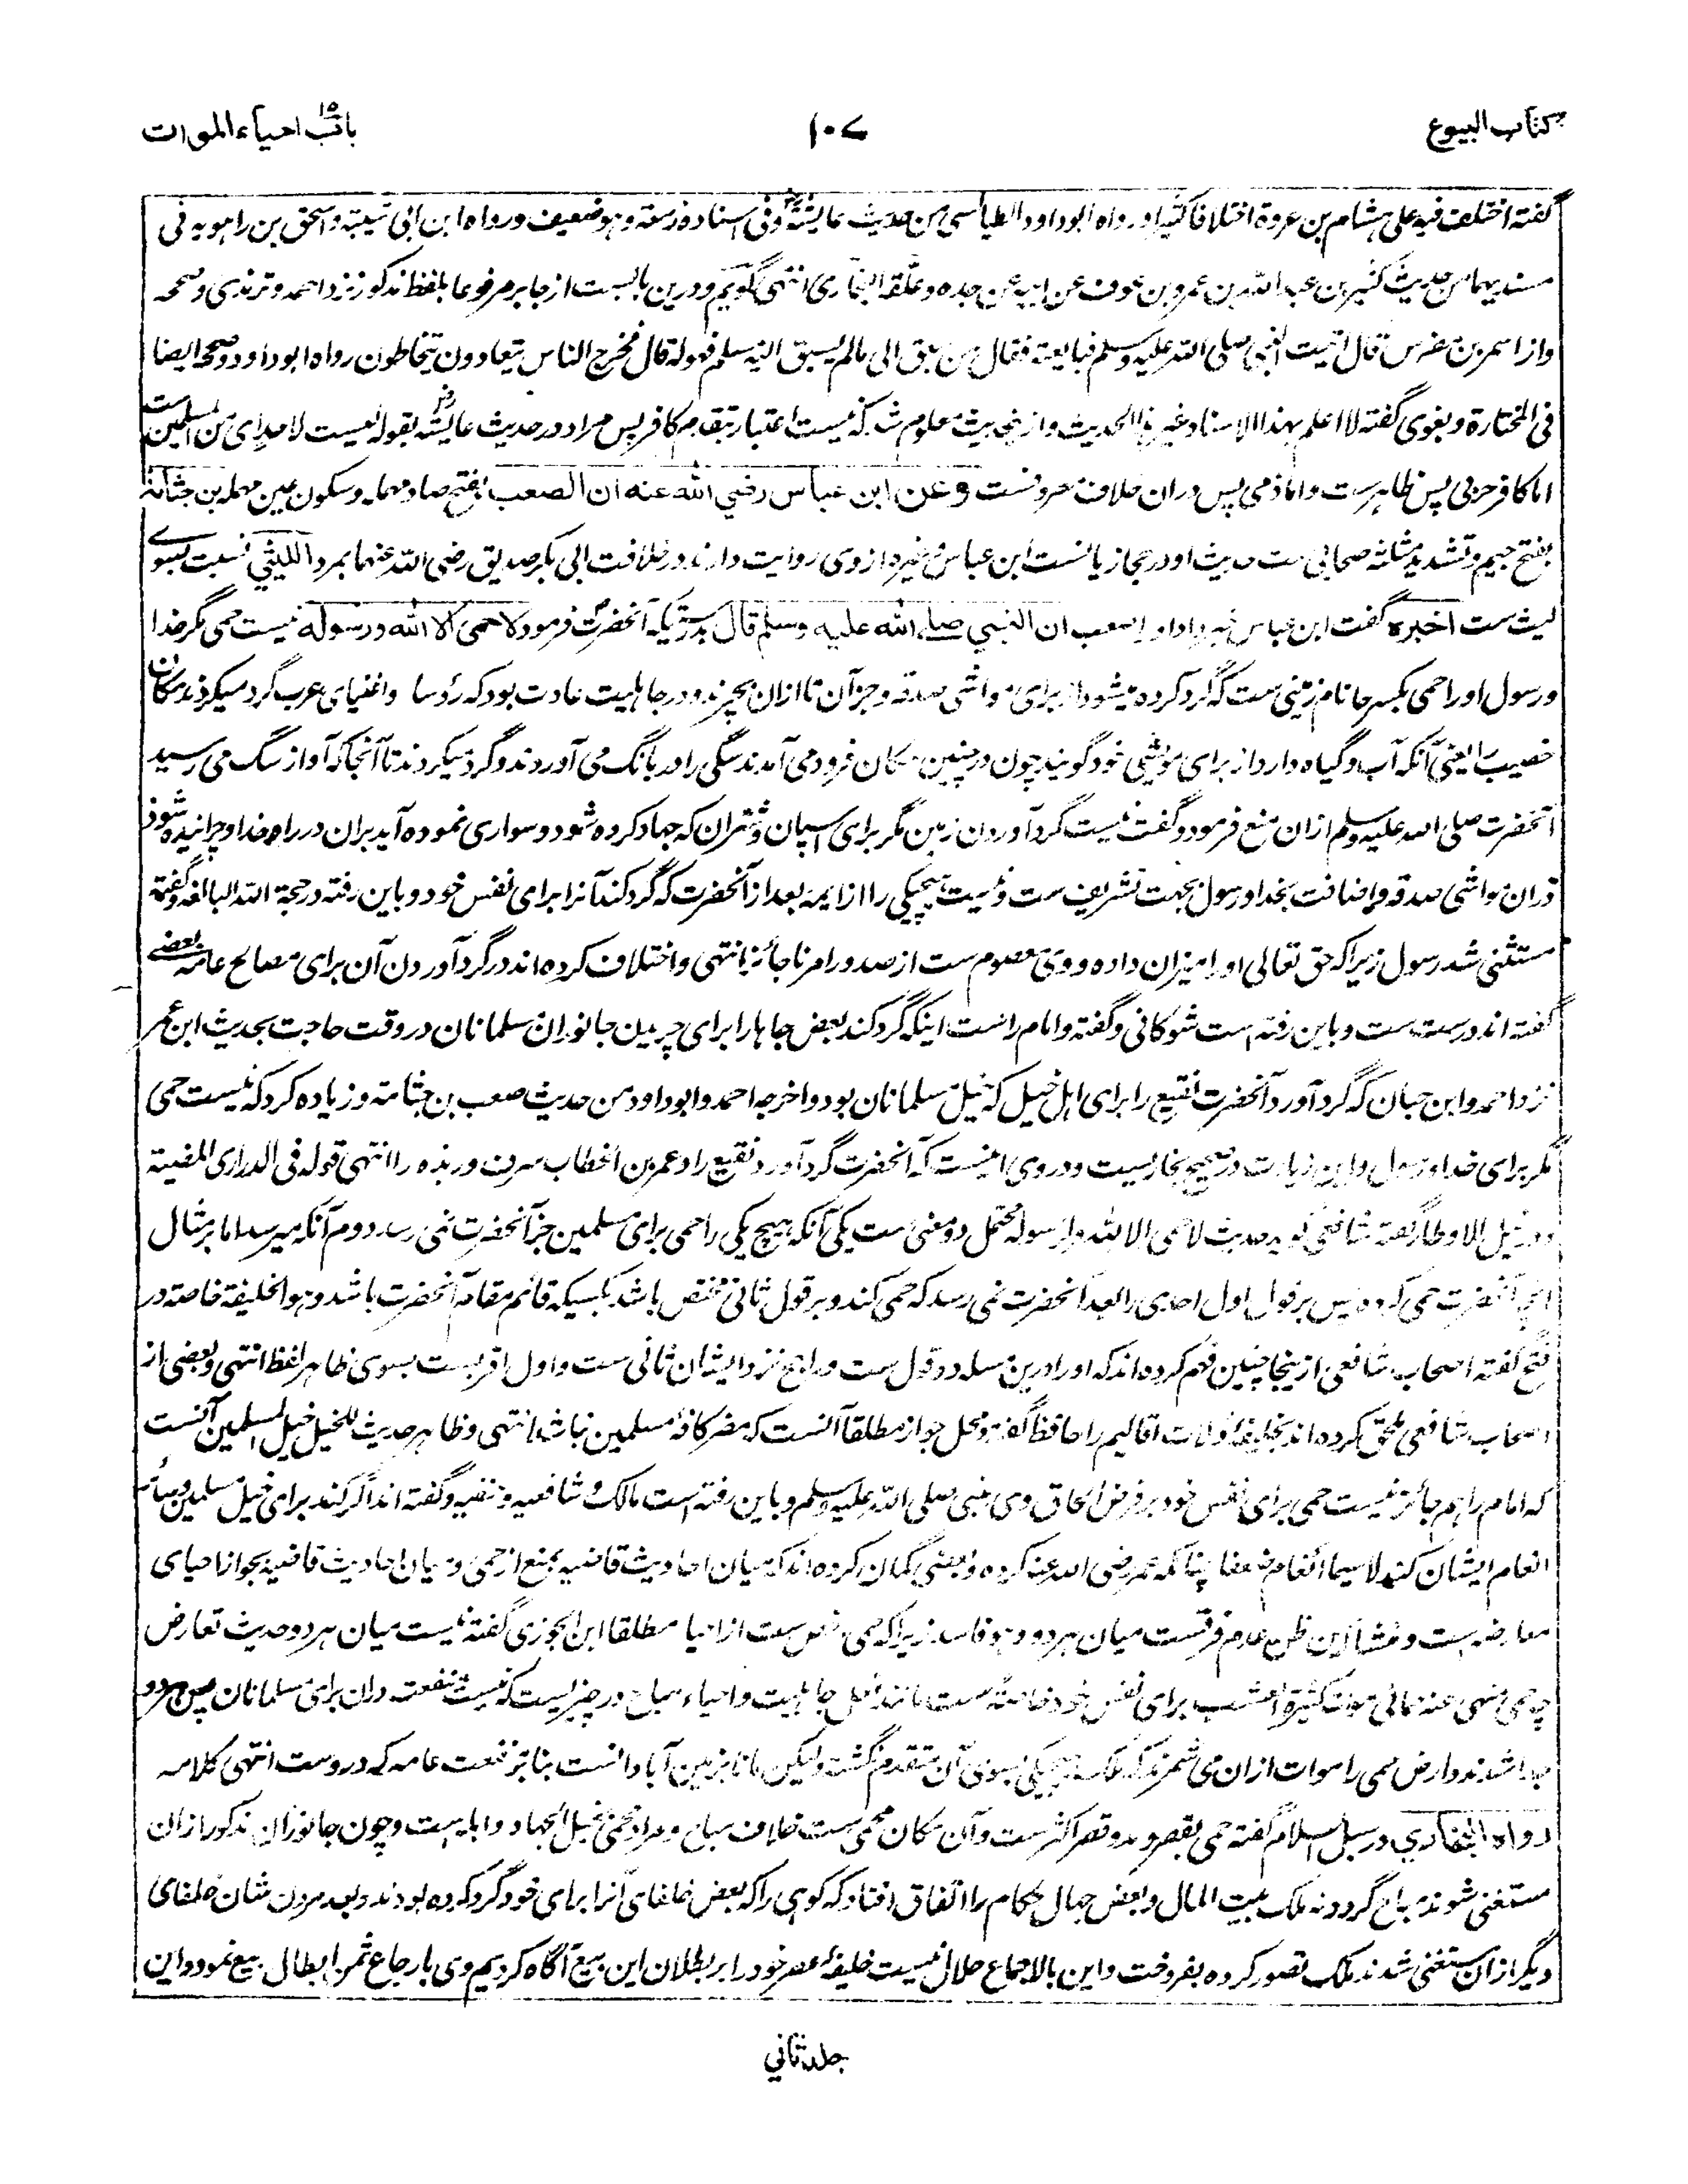 کتاب البیوع
۱۰۷
باب احیاء الموات
گفته اختلف فیه علی هشام بن عروة اختلافا کثیرا ورواه ابوداود الطیالسی من حدیث عایشه وفی اسناده زمعة وهو ضعیف ورواه ابن ابی شیبة واسحق بن راهویه فی
مسندیهما من حدیث کثیر بن عبدالله بن عمرو بن عوف عن ابیه عن جده وعلقه البخاری انتهی گویم ودرین بابست از جابر مرفوعا بلفظ مذکور نزد احمد وترمذی وصححه
واز اسمر بن مضرس قال اتیت النبی صلی الله علیه وسلم فبایعته فقال من سبق الی مالم یسبق الیه مسلم فهو له قال فخرج الناس یتعادون یتخاطون رواه ابوداود وصححه ایضا
فی المختارة وبغوی گفته لا اعلم بهذا الاسناد غیر هذا الحدیث وازینحدیث معلوم شد که نیست اعتبار تقدم کافر پس مراد در حدیث عایشه بقوله لیست لاحد ای من المسلمین ست
اما کافر حربی پس ظاهرست واما ذمی پس دران خلاف معروفست وعن ابن عباس رضي الله عنه ان الصعب بفتح صاد مهمله وسکون عین مهمله بن جثامة
بفتح جیم وتشدید مثلثه صحابی ست حدیث او در حجازیانست ابن عباس وغیره از وی روایت دارند در خلافت ابی بکر صدیق رضی الله عنهما بمرد اللیثي نسبت بسوے
لیث ست اخبره گفت ابن عباس خبر داد او را صعب ان النبي صلے الله علیه وسلم قال بدرستیکه آنحضرت فرمود لاحمی الا لله ورسوله نیست حمی مگر خدا
ورسول او را حمی بکسر حا نام زمینی ست که گرد کرده میشود از برای مواشی صدقه وجز آن تا ازان بچرند ودر جاهلیت عادت بود که رؤسا واغنیای عرب گرد میکردند مکان
خصیب را یعنی آنکه آب وگیاه دارد از برای مواشی خود گویند چون در چنین مکان فرود می آمدند سگی را در بانگ می آوردند وگرد میکردند تا آنجا که آواز سگ می رسید
آنحضرت صلی الله علیه وسلم ازان منع فرمود وگفت نیست گرد آوردن زمین مگر برای اسپان وشتران که جهاد کرده شود وسواری نموده آید بران در راه خدا وچرانیده شوند
دران مواشی صدقه واضافت بخدا ورسول بجهت تشریف ست ونیست هیچیکی را از ایمه بعد از آنحضرت که گرد کند آنرا برای نفس خود وباین رفته در حجة الله البالغه وگفته
مستثنی شد رسول زیرا که حق تعالی او را میزان داده ووی معصوم ست از صدور امر ناجائز انتهی واختلاف کرده اند در گرد آوردن آن برای مصالح عامه بعضے
گفته اند درست ست وباین رفته است شوکانی وگفته وامام راست اینکه گرد کند بعض جاها را برای چریدن جانوران مسلمانان در وقت حاجت بحدیث ابن عمر
نزد احمد وابن حبان که گرد آورد آنحضرت نقیع را برای اهل خیل که خیل مسلمانان بود واخرجه احمد وابوداود من حدیث صعب بن جثامة وزیاده کرد که نیست حمی
مگر برای خدا ورسول واین زیادت در صحیح بخاریست ودروی اینست که آنحضرت گرد آورد نقیع را وعمر بن الخطاب سرف وربذه را انتهی قوله فی الدراری المضیئة
ودر نیل الاوطار گفته شافعی گوید حدیث لا حمی الا لله ولرسوله محتمل دو معنی ست یکی آنکه هیچ یکی را حمی برای مسلمین جز آنحضرت نمی رسد دوم آنکه میرسد اما بر مثال
آنچه آنحضرت حمی کرده پس بر قول اول احدی را بعد آنحضرت نمی رسد که حمی کند وبر قول ثانی مختص باشد بکسیکه قائم مقام آنحضرت باشد وهو الخلیفة خاصة در
فتح گفته اصحاب شافعی ازینجا چنین فهم کرده اند که او را درین مسئله دو قول ست وراجح نزد ایشان ثانی ست واول اقربست بسوی ظاهر لفظ انتهی وبعضی از
اصحاب شافعی ملحق کرده اند بخلیفه ولات اقالیم را حافظ گفته ومحل جواز مطلقا آنست که مضر کافۀ مسلمین نباشد انتهی وظاهر حدیث للخیل خیل المسلمین آنست
که امام را هم جائز نیست حمی برای نفس خود بر فرض الحاق وی بنبی صلی الله علیه وسلم وباین رفته است مالک وشافعیه وحنفیه وگفته اند اگر کند برای خیل مسلمین وسائر
انعام ایشان کند لاسیما انعام ضعفا چنانکه عمر رضی الله عنه کرده وبعضی گمان کرده اند که میان احادیث قاضیه بمنع از حمی ومیان احادیث قاضیه بجواز احیای
معارضه است ومنشأ این ظن عدم فرقست میان هر دو وهو فاسد زیرا که حمی اخص ست از احیا مطلقا ابن الجوزی گفته نیست میان هر دو حدیث تعارض
چه حمی منهی عنه حمائی موات کثیرة العشب برای نفس خود خاصةً ست مانند فعل جاهلیت واحیاء مباح در چیزیست که نیست منفعت دران برای مسلمانان پس هر دو
جدا شدند وارض حمی را موات ازان می شمرند که ملک هیچیکی بسوی آن متقدم نگشت ولیکن مانا بزمین آبادانست بنا بر منفعت عامه که دروست انتهی کلامه
رواه البخاري در سبل السلام گفته حمی بقصر ومد وقصر اکثرست وآن مکان محمی ست خلاف مباح ومراد بحمی خیل الجهاد وابل ست وچون جانوران مذکور ازان
مستغنی شوند مباح گردد نه ملک بیت المال وبعض جهال حکام را اتفاق افتاد که کوهی را که بعض خلفای آنرا برای خود گرد کرده بودند وبعد مردن شان خلفای
دیگر ازان مستغنی شدند ملک تصور کرده بفروخت واین بالاجماع حلال نیست خلیفۀ عصر خود را بر بطلان این بیع آگاه کردیم وی بارجاع ثمن ابطال بیع نمود واین
جلد ثاني